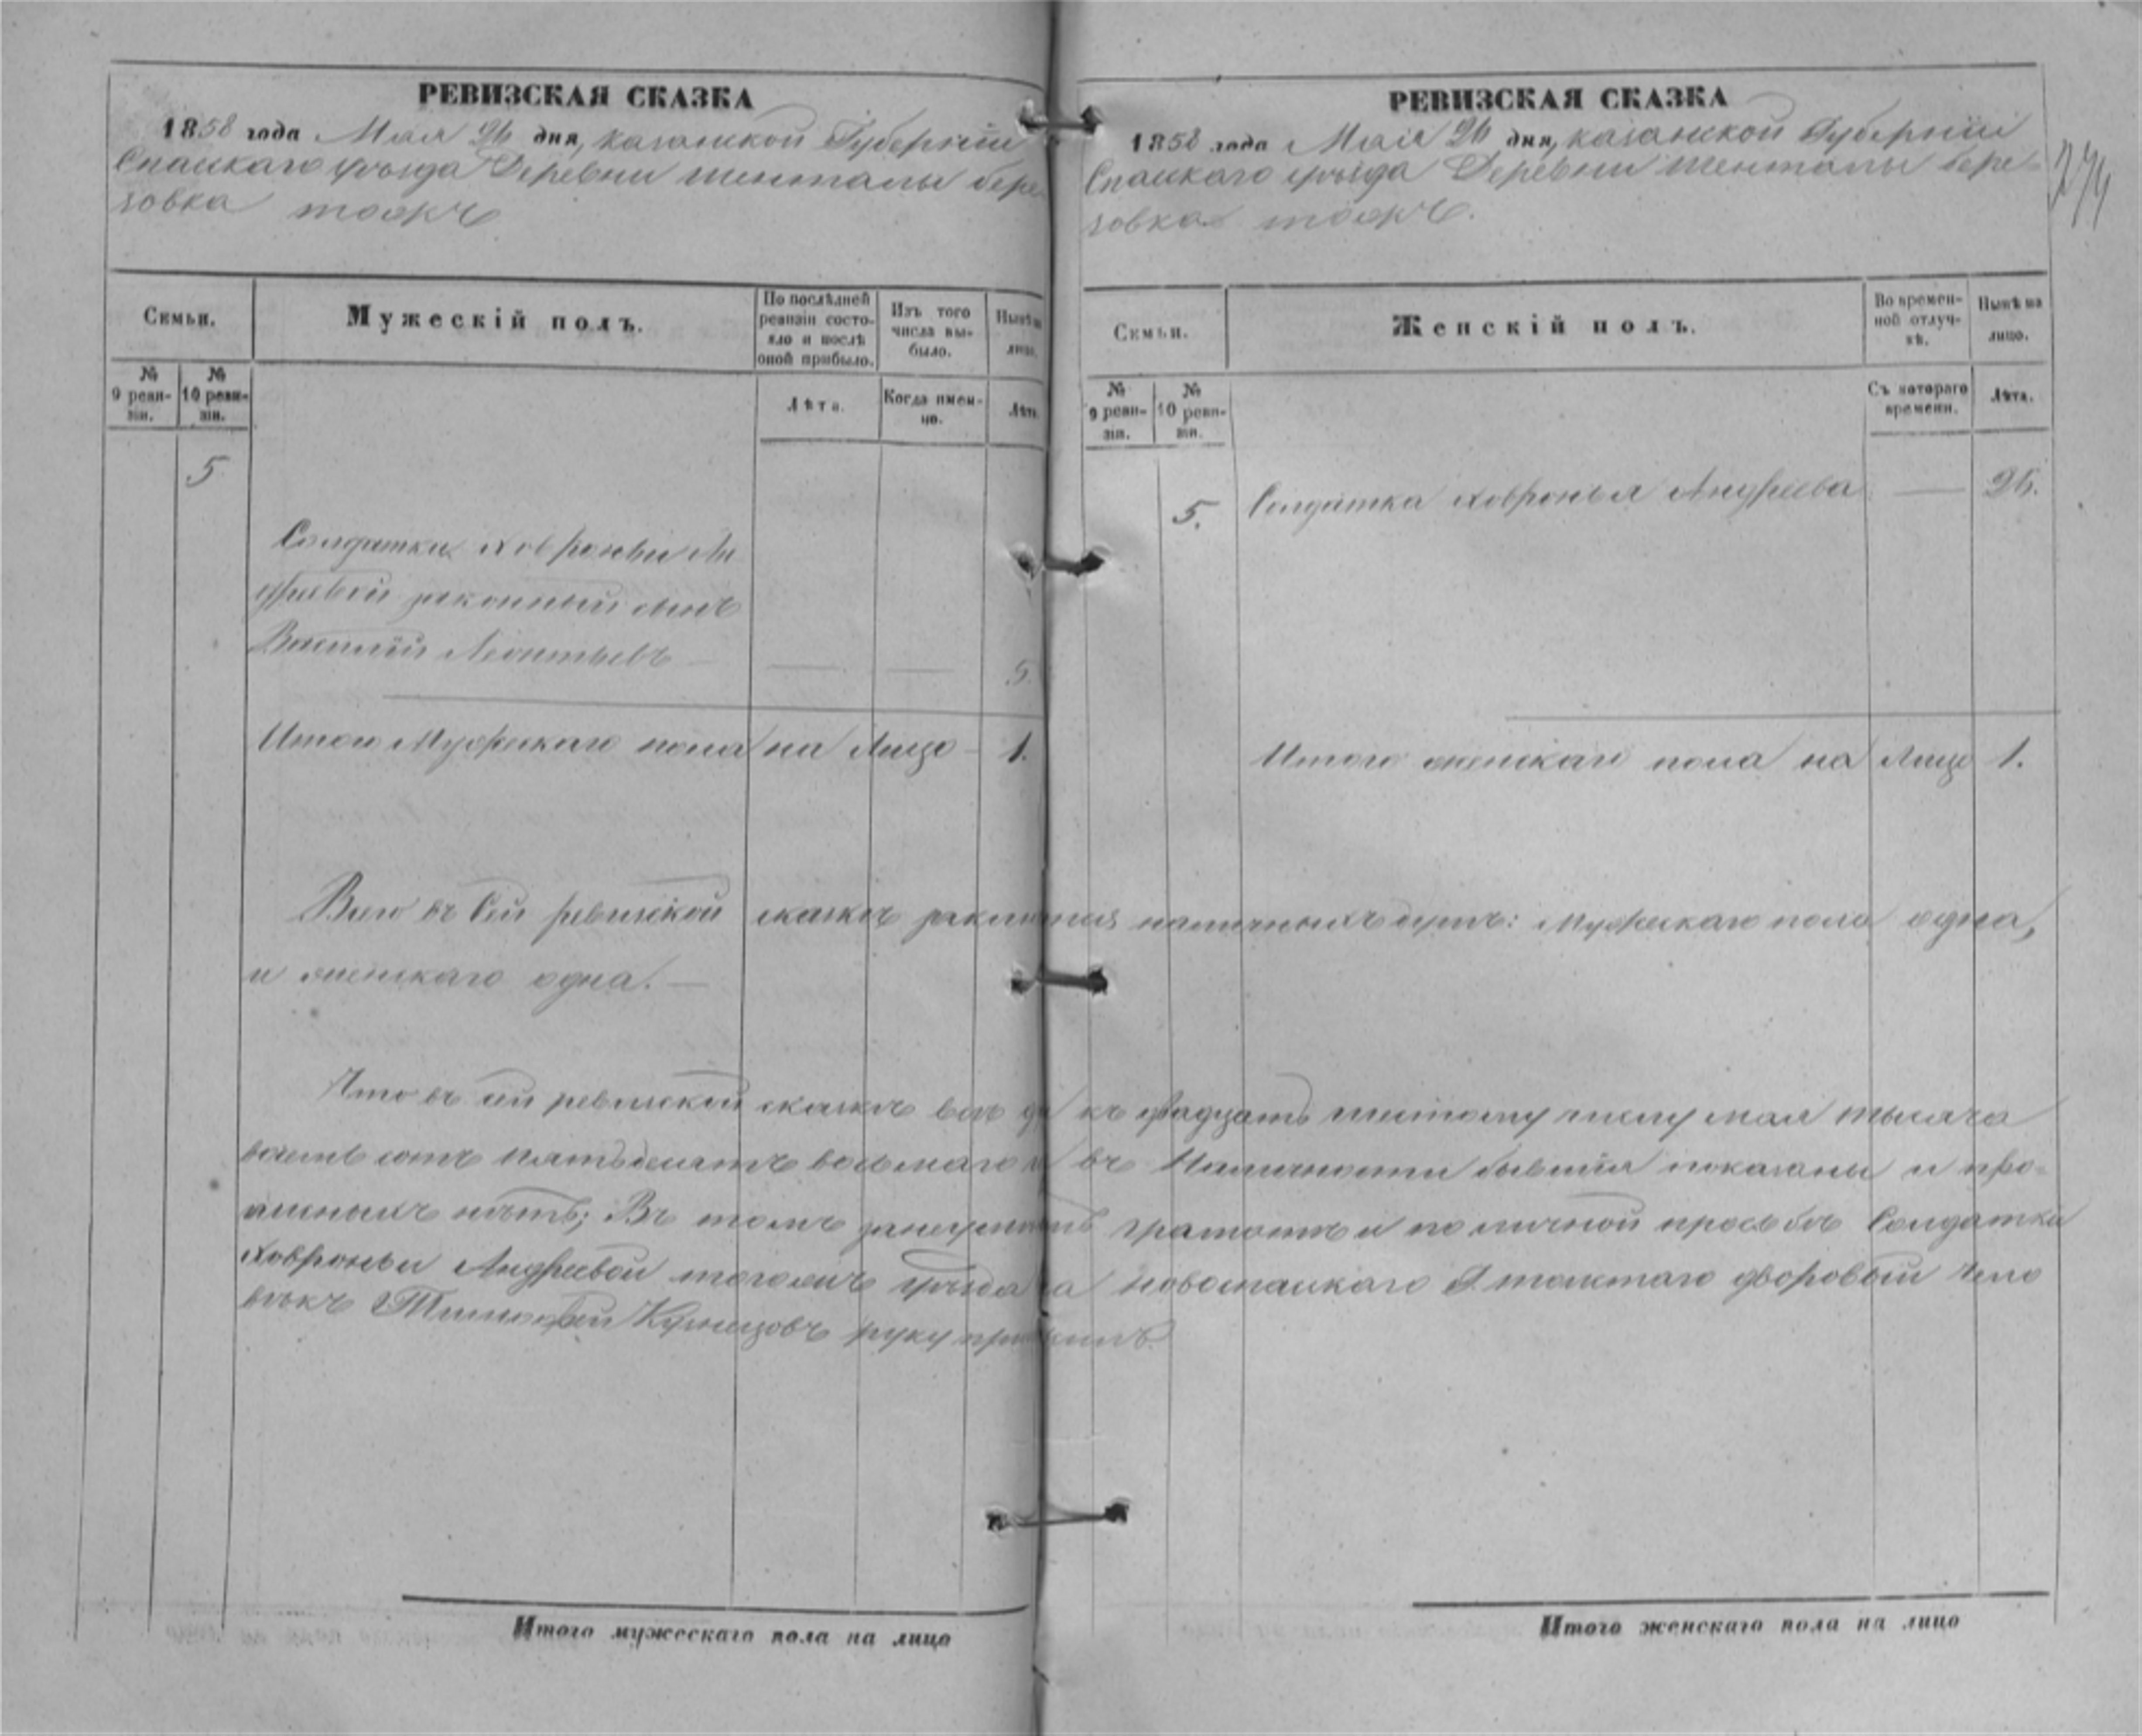 РЕВИЗСКАЯ СКАЗКА
1858 года Мая 26 дня, казанской Губернiи
Спаскаго уѣзда Деревни шенталы бере
зовка тожъ
Семьи.
Мужескiй полъ.
По послѣдней ревизiи состояло и послѣ оной прибыло.
Изъ того числа выбыло.
Нынѣ на лицо.
№ 9 ревизiи.
№ 10 ревизiи.
Лѣта.
Когда именно.
Лѣта.
5
Солдатки Ховроньи Ан
дреевой законный сынъ
Василiй Леонтьевъ — — — 5
Итого Мужескаго пола на Лицо - 1.
РЕВИЗСКАЯ СКАЗКА
1858 года Мая 26 дня, казанской Губернiи
Спаскаго уѣзда Деревни шенталы бере-
зовка тожъ.
274
Семьи.
Женскiй полъ.
Во временной отлучкѣ.
Нынѣ на лицо.
№ 9 ревизiи.
№ 10 ревизiи.
Съ котораго времени.
Лѣта.
5. Солдатка Ховронья Андреева — 26.
Итого женскаго пола на Лицо 1.
Всего въ Сей ревизской сказкѣ наличныхъ душъ: Мужескаго пола одна,
и женскаго одна. —
Что въ сей ревизской сказкѣ всѣ къ двадцать шестому числу мая тысяча
восемь сотъ пятьдесятъ восьмаго въ Наличности бывшiя показаны и про-
писныхъ нѣтъ; Въ томъ грамотѣ и по личной прозьбѣ Солдатки
Ховроньи Андреевой тогожъ уѣзда новоспаскаго толстаго дворовый чело
вѣкъ Тимофей Кузнецовъ руку приложилъ
Итого мужескаго пола на лицо
Итого женскаго пола на лицо